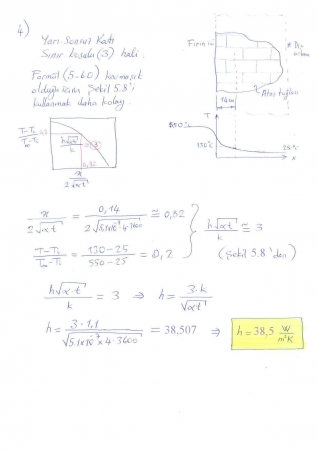 4)
Yarı-Sonsuz Katı
Sınır koşulu (3) hali:
Formül (5-60) karmaşık
olduğu için Şekil 5.8'i
kullanmak daha kolay
Fırın içi
Dış ortam
14cm
Ateş tuğlası
T
550°C
130°C
25°C
x
T-Ti / T∞-Ti
h√αt / k
0,82
x / 2√αt
x / 2√αt = 0,14 / 2√5.1x10⁻⁷·4·3600 ≅ 0,82
T-Ti / T∞-Ti = 130-25 / 550-25 = 0,2
h√αt / k ≅ 3
(Şekil 5.8'den)
h√α·t / k = 3 ⇒ h = 3·k / √αt
h = 3·1,1 / √5.1x10⁻⁷ x 4·3600 = 38,507 ⇒ h = 38,5 W/m²K